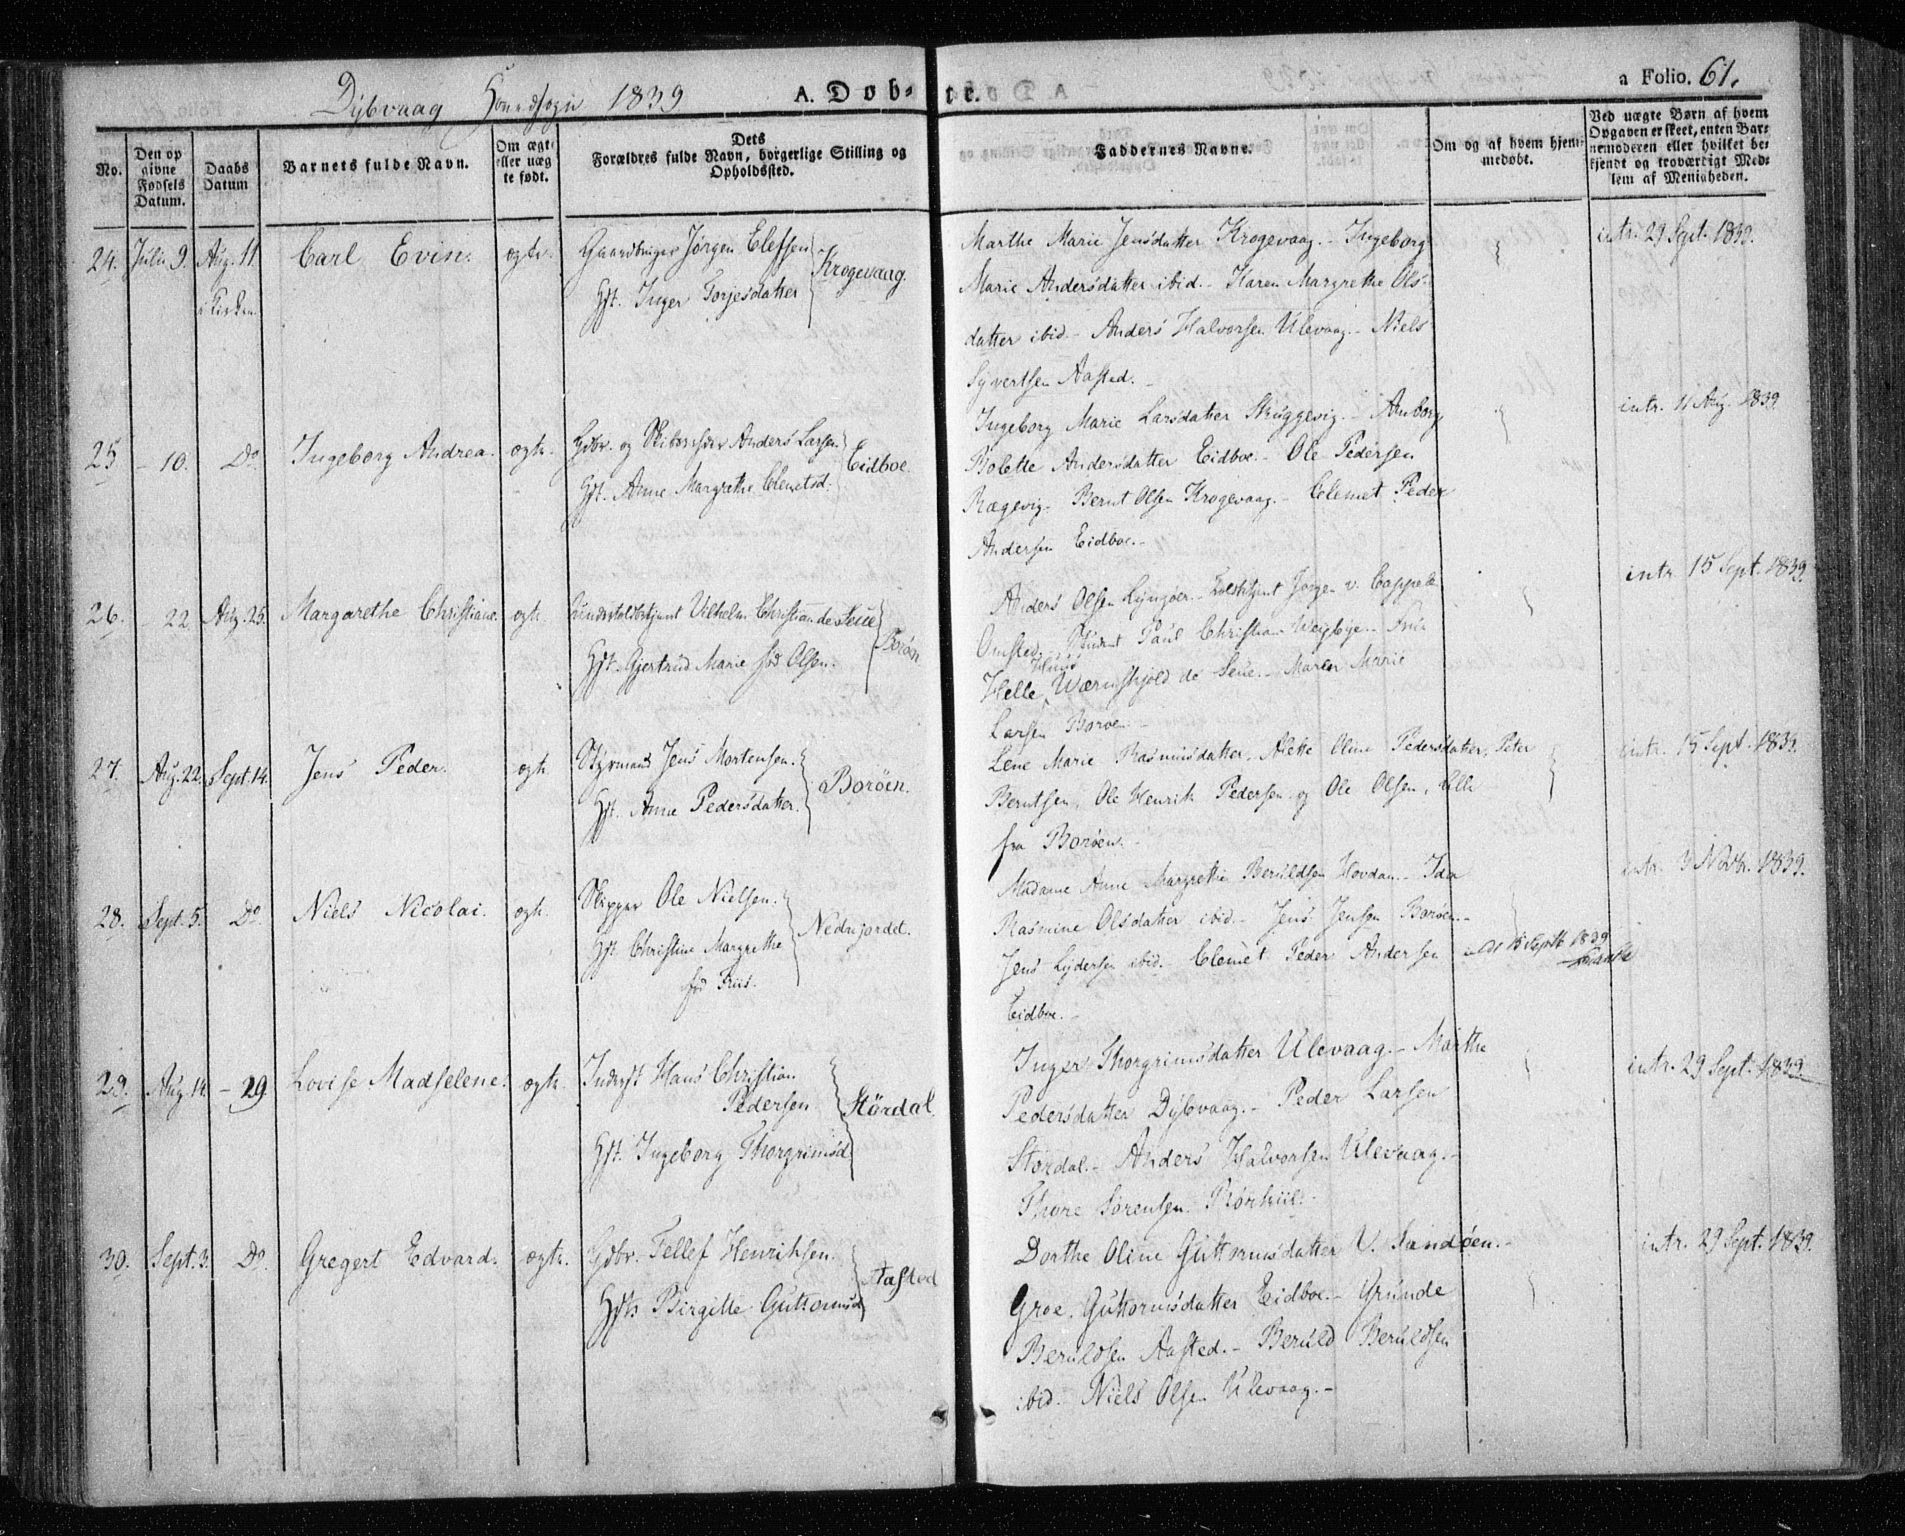 Dybvaag Hovedsogn 1839 A. Dob- te. a Folio. 61.
No.
Den op givne Fødsels Datum.
Daabs Datum
Barnets fulde Navn.
Om ægte eller uæg te født.
Dets Forældres fulde Navn, borgerlige Stilling og Opholdssted.
Faddernes Navne.
Om og af hvem hjem- medøbt.
Ved uægte Børn af hvem Opgaven er skeet, enten Bar- nemoderen eller hvilket be- kjendt og troværdigt Med- lem af Menigheden.
24. Julii 9. Aug. 11 i Kirken Carl Evin. ægte.
Gaardbruger Jørgen Elefsen
Hst. Inger Torjesdatter
Krogevaag.
Marthe Marie Jensdatter Krogevaag. - Ingeborg
Marie Andersdatter ibid. - Karen Margrethe Ols-
datter ibid. - Anders Halvorsen Ulevaag. - Niels
Syvertsen Aasted. -
intr. 29 Sept. 1839.
25 - 10. Do Ingeborg Andrea. ægte.
Gdbr. og Anders Larsen
Hst. Anne Margrethe Clemetsd.
Eidboe
Ingeborg Marie Larsdatter Skuggevig. - Anborg
Bolette Andersdatter Eidboe. - Ole Pedersen
Rægevig. Bernt Olsen Krogevaag. - Clemet Peder
Andersen Eidboe. -
intr. 11 Aug. 1839
26. - 22 Aug. 25. Margarethe Christiane. ægte.
Vilhelm Christian de Seue
Hst. Gjertrud Marie fød Olsen.
Borøn
Anders Olsen Lyngøer. - Jørgen v. Cappele
Omsted. Paul Christian Weigbye. - Frue
Helle Huus Wærnskjold de Seue. - Maren Marie
Larsen Borøe -
intr 15 Sept. 1839.
27. Aug. 22. Sept. 14. Jens Peder. ægte
Styrmand Jens Mortensen.
Hst. Anne Pedersdatter.
Borøen.
Lene Marie Rasmusdatter, Alette Oline Pedersdatter, Peter
Berntsen, Ole Henrik Pedersen og Ole Olsen, alle
fra Borøen. -
intr. 15 Sept. 1839.
28. Sept. 5. Do Niels Nicolai. ægte.
Skipper Ole Nielsen.
Hst. Christine Margrethe
fød Friis.
Nedrejordet.
Madame Anne Margrethe Beruldsen Hovdan. - Ida
Rasmine Olsdatter ibid. - Jens Jensen Borøen. -
Jens Lydersen ibid. - Clemet Peder Andersen
Eidboe. -
15 Septb 1839
intr. 3 Novbr. 1839.
29. Aug. 14. - 29. Lovise Madselene. ægte.
Inderst Hans Christian
Pedersen
Hst. Ingeborg Thorgrimsd
Stördal.
Inger Thorgrimsdatter Ulevaag. - Marthe
Pedersdatter Dybvaag. - Peder Larsen
Stordal. - Anders Halvorsen Ulevaag. -
Thore Sørensen Rørkiil. -
intr. 29 Sept. 1839
30. Sept. 3. Do. Gregert Edvard. ægte.
Gdbr. Tellef Henriksen.
Hst. Birgitte Guttormsd
Aasted
Dorthe Oline Guttormsdatter V. Sandøen. -
Groe Guttormsdatter Eidboe. - Grunde
Beruldsen Aasted. - Beruld Beruldsen
ibid. Niels Olsen Ulevaag. -
intr. 29 Sept. 1839.